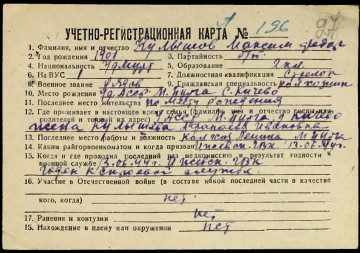 196
УЧЕТНО-РЕГИСТРАЦИОННАЯ КАРТА №
1. Фамилия, имя и отчество Кулышов Максим Федор
2. Год рождения 1901 3. Партийность б/п
4. Национальность Удмурт 5. Образование 2 кл.
6. На ВУС 1 7. Должностная квалификация Стрелок
8. Военное звание 9. Гражданская специальность колхозник
10. Место рождения АССР М. Пурга с. Кичево
11. Последнее место жительства по месту рождения
12. Где проживает в настоящее время семья (адрес, фамилия и отчество жены или
родителей и
жена Кулышова Ивановна
13. Последнее место работы и должность М. Пурга
14. Каким райгорвоенкоматом и когда призван Ижевск. ГВК 13.06.44г.
15. Когда и где проходил последний раз медкомиссию и результат годности к
военной службе 13.06.44г. Ижевск. ГВК
Годен к строевой службе.
16. Участие в Отечественной войне (в составе какой последней части и в качестве
кого, когда) нет
17. Ранение и контузии нет
18. Нахождение в плену или окружении нет